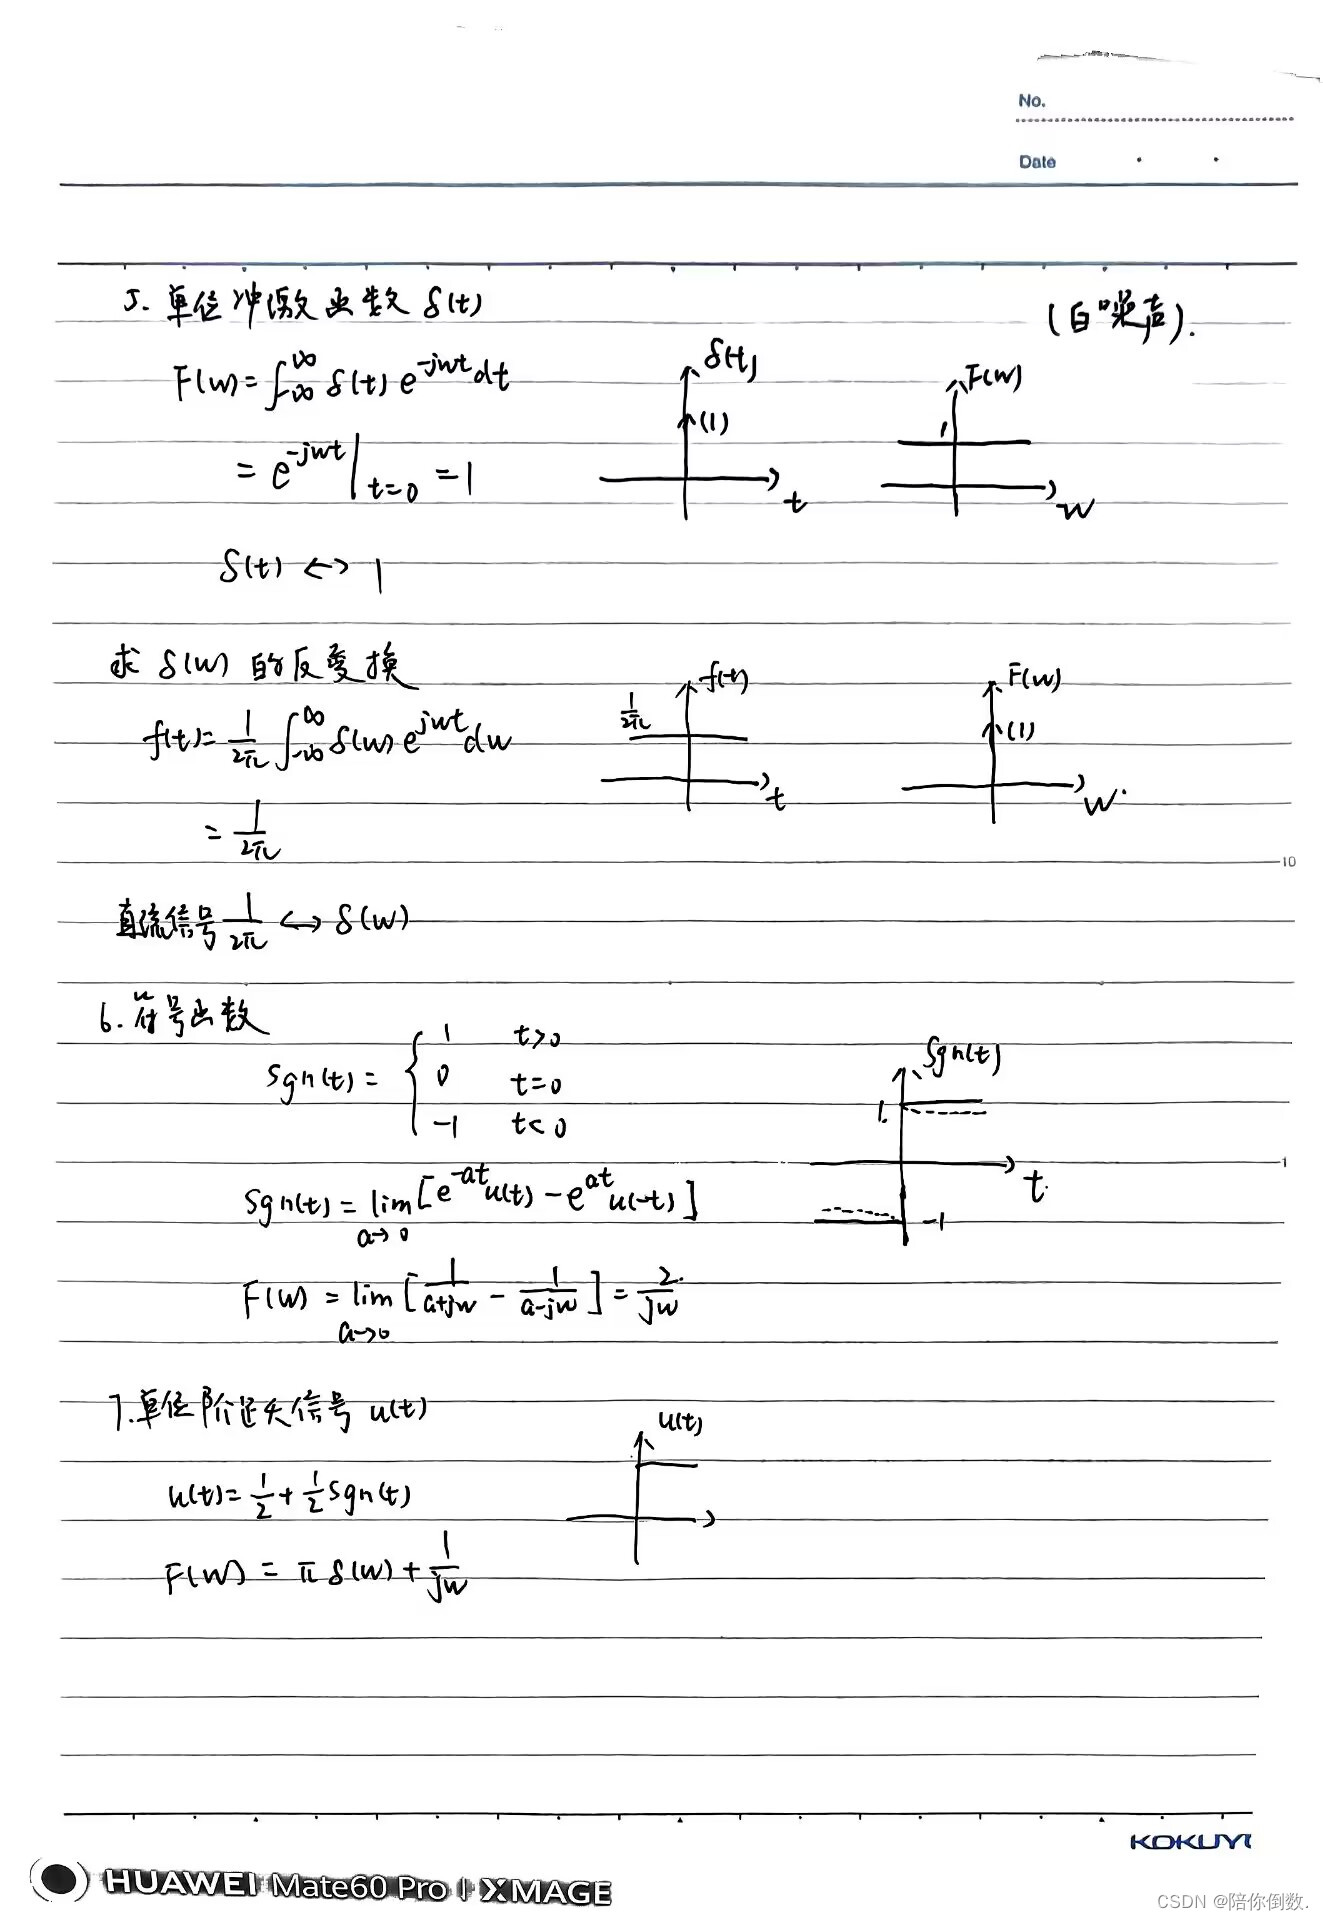 No.
Date
5. 单位冲激函数 δ(t)
(白噪声).
F(w) = ∫_{-∞}^{∞} δ(t) e^{-jwt} dt
= e^{-jwt} |_{t=0} = 1
δ(t)
(1)
t
F(w)
1
w
δ(t) ↔ 1
求 δ(w) 的反变换
f(t) = \frac{1}{2π} ∫_{-∞}^{∞} δ(w) e^{jwt} dw
= \frac{1}{2π}
f(t)
\frac{1}{2π}
t
F(w)
(1)
w
10
直流信号 \frac{1}{2π} ↔ δ(w)
6. 符号函数
Sgn(t) = { 1 t>0
0 t=0
-1 t<0
Sgn(t)
1
t
-1
1
Sgn(t) = lim_{a→0} [e^{-at} u(t) - e^{at} u(-t)]
F(w) = lim_{a→0} [\frac{1}{a+jw} - \frac{1}{a-jw}] = \frac{2}{jw}
7. 单位阶跃信号 u(t)
u(t) = \frac{1}{2} + \frac{1}{2} Sgn(t)
F(w) = π δ(w) + \frac{1}{jw}
u(t)
KOKUYO
HUAWEI Mate60 Pro | XMAGE
CSDN @陪你倒数.